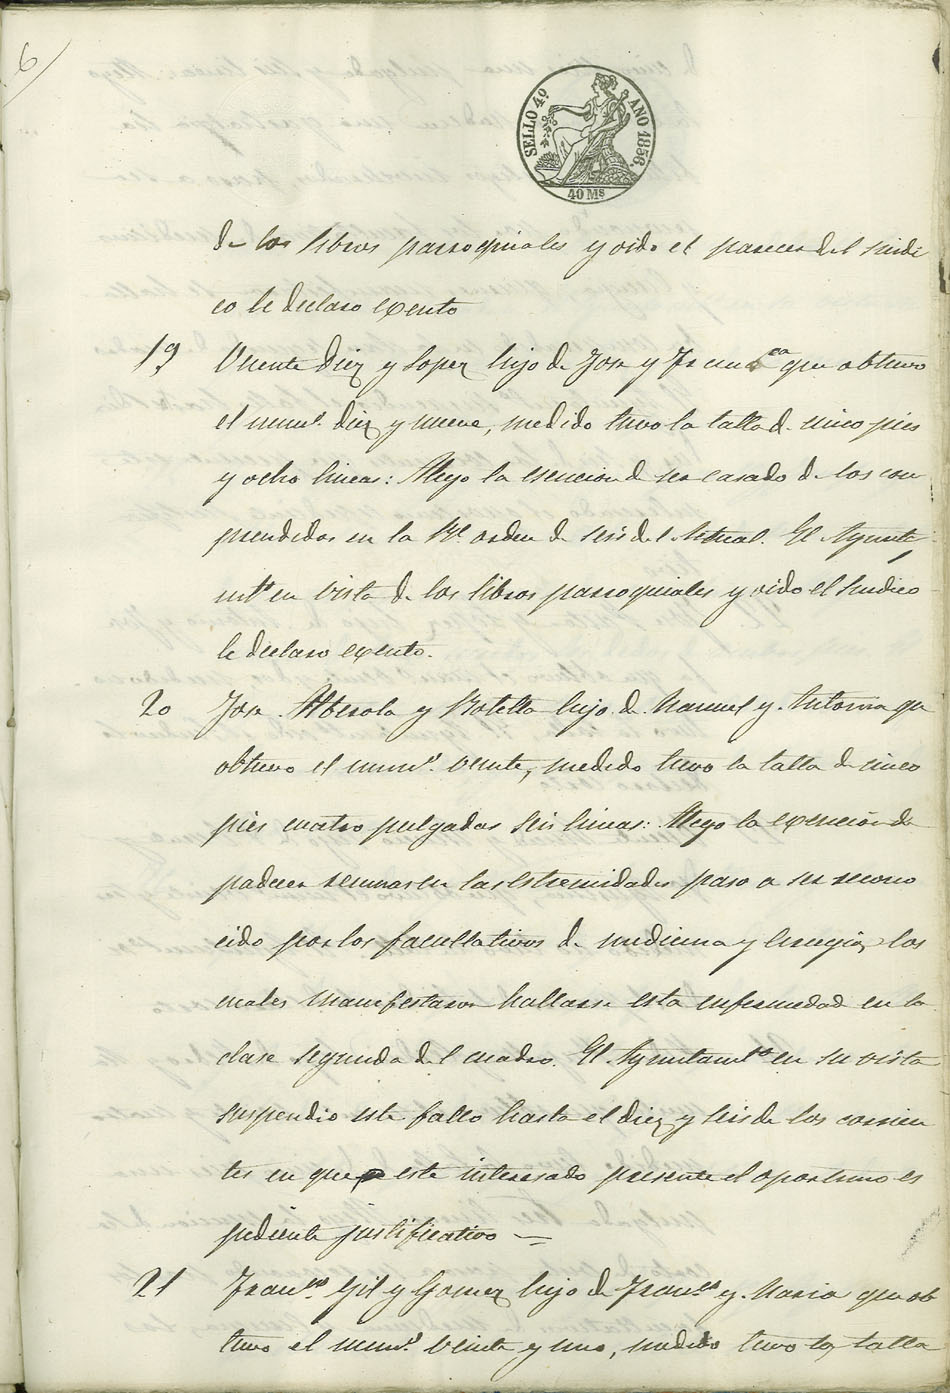 6
SELLO 4º AÑO 1856.
40 Ms
de los libros parroquiales y oido el parecer del Sindi
co le declaro exento
19 Vicente Diez y Lopez hijo de Jose y Franca que obtuvo
el numº diez y nueve, medido tuvo la talla de cinco pies
y ocho lineas: Alego la esencion de ser casado de los com
prendidos en la Rl orden de seis del Actual. El Ayunta
mto en vista de los libros parroquiales y oido el Sindico
le declaro exento.
20 Jose Alberola y Botella hijo de Manuel y Antonia que
obtuvo el numº veinte, medido tuvo la talla de cinco
pies cuatro pulgadas seis lineas: Alego la exencion de
padecer reumas en las estremidades paso a ser recono
cido por los facultativos de medicina y cirugia, los
cuales manifestaron hallarse esta enfermedad en la
clase segunda del cuadro. El Ayuntamto en su vista
suspendio este fallo hasta el diez y seis de los corrien
tes en que este interesado presente el oportuno es
pediente justificativo
21 Franco Gil y Gomez hijo de Franco y Maria que ob
tuvo el numº veinte y uno, medido tuvo la talla